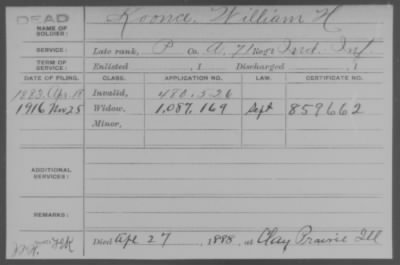 DEAD
NAME OF SOLDIER: Koonce, William H
SERVICE: Late rank, P Co. A, 71 Regt Ind. Inf
TERM OF SERVICE: Enlisted , 1 Discharged , 1
DATE OF FILING. CLASS. APPLICATION NO. LAW. CERTIFICATE NO.
1883, Apr. 18 Invalid, 480.526
1916 Nov 25 Widow, 1,087,169 Sept 859662
Minor,
ADDITIONAL SERVICES:
REMARKS:
Died Apl 27 , 1888, at Clay Prairie Ill